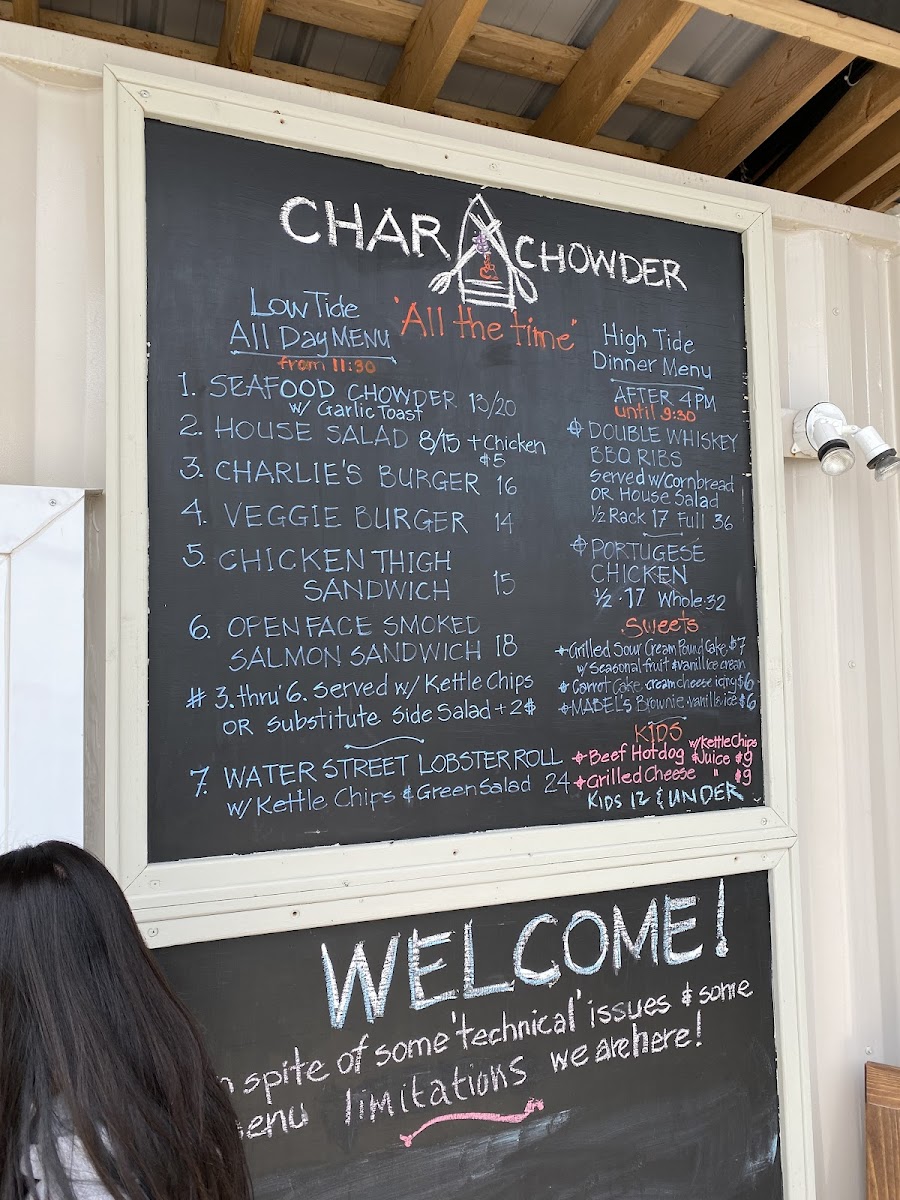 CHAR CHOWDER
"All the time"
Low Tide
All Day MENU
from 11:30
1. SEAFOOD CHOWDER 13/20
w/ Garlic Toast
2. HOUSE SALAD 8/15 + Chicken
$5
3. CHARLIE'S BURGER 16
4. VEGGIE BURGER 14
5. CHICKEN THIGH
SANDWICH 15
6. OPEN FACE SMOKED
SALMON SANDWICH 18
# 3. thru' 6. Served w/ Kettle Chips
OR Substitute Side Salad + 2$
7. WATER STREET LOBSTER ROLL
w/ Kettle Chips & Green Salad 24
High Tide
Dinner Menu
AFTER 4 PM
until 9:30
DOUBLE WHISKEY
BBQ RIBS
Served w/ Cornbread
OR House Salad
1/2 Rack 17 Full 36
PORTUGESE
CHICKEN
1/2 . 17 Whole . 32
Sweets
Grilled Sour Cream Pound Cake $7
w/ Seasonal fruit & vanilla ice cream
Carrot Cake cream cheese icing $6
MABEL'S Brownie vanilla ice $6
KIDS
Beef Hotdog w/ Kettle Chips & Juice $9
Grilled Cheese " $9
KIDS 12 & UNDER
WELCOME!
spite of some 'technical' issues & some
limitations we are here!